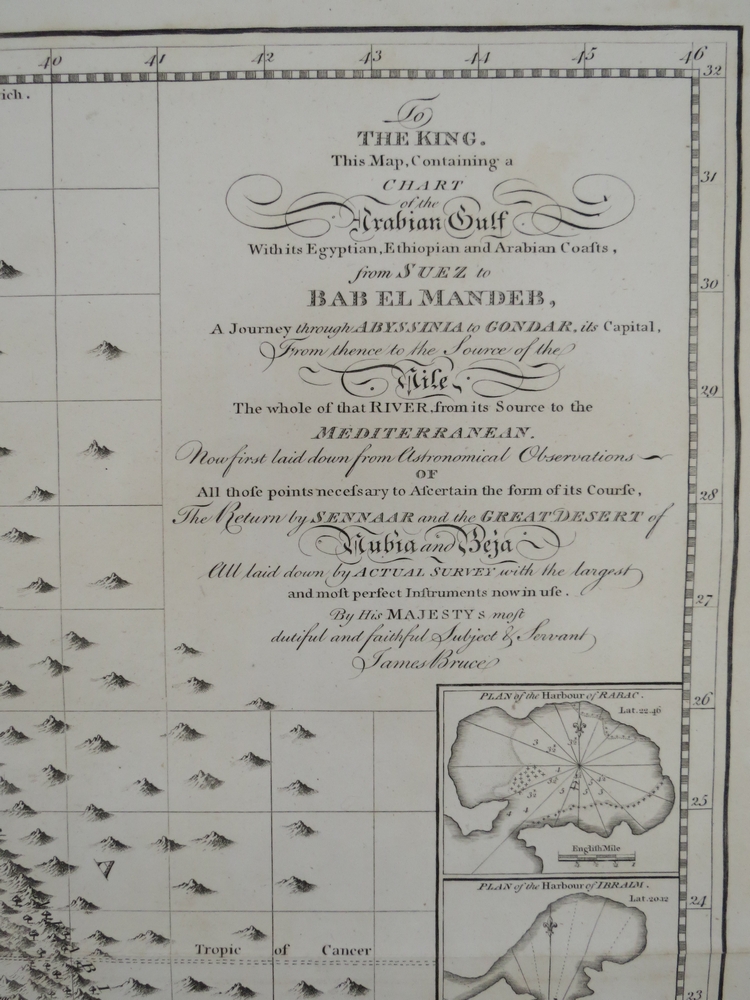 40 41 42 43 44 45 46
32
ich.
To
THE KING.
This Map, Containing a
CHART
of the
Arabian Gulf
With its Egyptian, Ethiopian and Arabian Coaſts,
from SUEZ to
BAB EL MANDEB,
A Journey through ABYSSINIA to GONDAR, its Capital,
From thence to the Source of the
Nile,
The whole of that RIVER, from its Source to the
MEDITERRANEAN.
Now first laid down from Astronomical Observations
OF
All thoſe points neceſsary to Aſcertain the form of its Courſe,
The Return by SENNAAR and the GREAT DESERT of
Nubia and Beja
All laid down by ACTUAL SURVEY with the largest
and moſt perfect Inſtruments now in uſe.
By His MAJESTYs moſt
dutiful and faithful Subject & Servant
James Bruce
31
30
29
28
27
26
25
24
23
PLAN of the Harbour of RABAC.
Lat. 22.46
Engliſh Mile
PLAN of the Harbour of IBRAIM.
Lat. 20.12
Tropic of Cancer